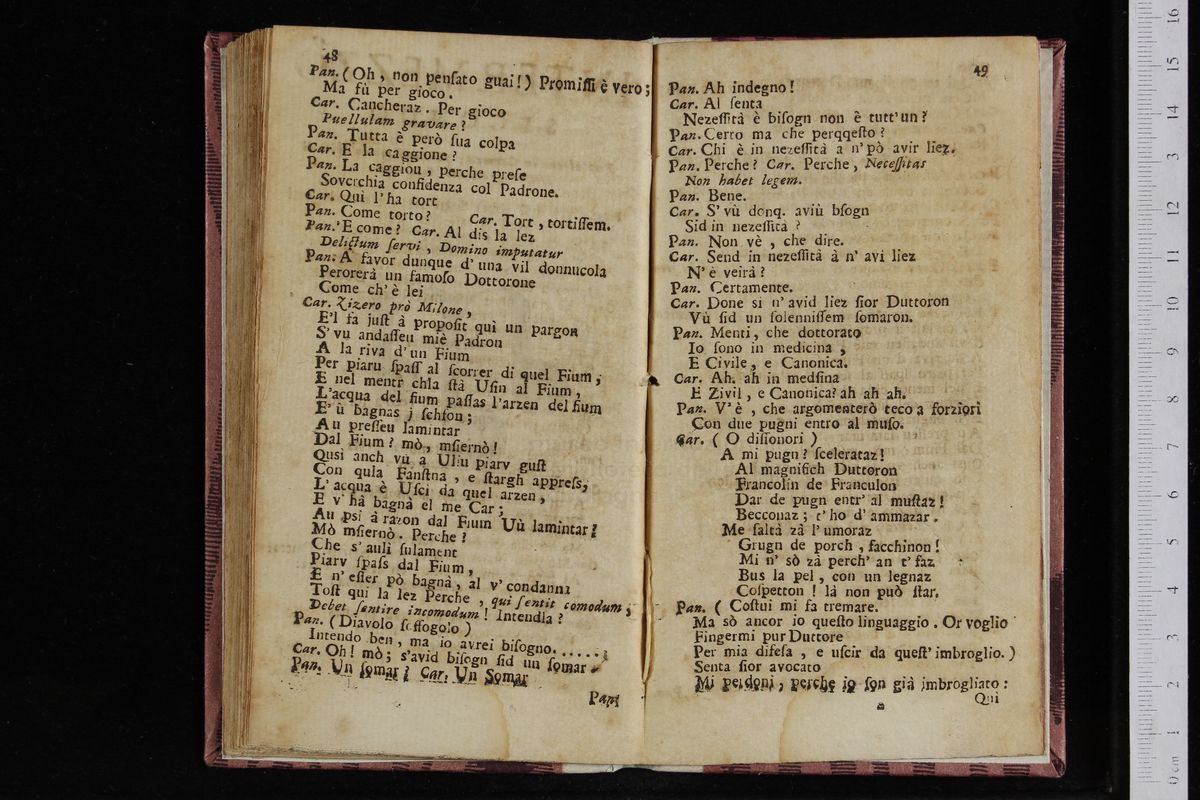 48
Pan. (Oh, non penſato guai!) Promiſſi è vero;
Ma fù per gioco.
Car. Cancheraz. Per gioco
Puellulam gravare?
Pan. Tutta è però ſua colpa
Car. E la caggione?
Pan. La caggiou, perche preſe
Soverchia confidenza col Padrone.
Car. Quì l'ha tort
Pan. Come torto? Car. Tort, tortiſſem.
Pan. E come? Car. Al dis la lez
Delictum ſervi, Domino imputatur
Pan. A favor dunque d'una vil donnucola
Perorerà un famoſo Dottorone
Come ch'è lei
Car. Zizero prò Milone,
E'l fa juſt à propoſit quì un pargon
S'vu andaſſeu miè Padron
A la riva d'un Fium
Per piaru ſpaſſ al ſcorrer di quel Fium,
E nel mentr chla ſtà Uſin al Fium,
L'acqua del fium paſſas l'arzen del fium
E'ù bagnas j ſchſon;
Au preſſeu lamintar
Dal Fium? mò, mſiernò!
Qusi anch vu a Uliu piarv guſt
Con qula Fanſtna, e ſtargh appreſs,
L'acqua è Uſci da quel arzen,
E v'hà bagnà el me Car;
Au psi à razon dal Fium Uù lamintar?
Mò mſiernò. Perche?
Che s'auli ſulament
Piarv ſpaſs dal Fium,
E n'eſſer pò bagnà, al v'condanna
Toſt quì la lez Perche, qui ſentit comodum,
Debet ſentire incomodum! Intendla?
Pan. (Diavolo ſoffogolo)
Intendo ben, ma io avrei biſogno. . . . . .;
Car. Oh! mò; s'avid biſogn ſid un ſomar
Pan. Un ſomar? Car. Un Somar
Pan;
49
Pan. Ah indegno!
Car. Al ſenta
Nezeſſità è biſogn non è tutt'un?
Pan. Certo ma che perqqeſto?
Car. Chi è in nezeſſità a n'pò avir liez.
Pan. Perche? Car. Perche, Neceſſitas
Non habet legem.
Pan. Bene.
Car. S'vù donq. aviù bſogn
Sid in nezeſſità?
Pan. Non vè, che dire.
Car. Send in nezeſſità à n'avi liez
N'è veirà?
Pan. Certamente.
Car. Done si n'avid liez ſior Duttoron
Vù ſid un ſolenniſſem ſomaron.
Pan. Menti, che dottorato
Io ſono in medicina,
E Civile, e Canonica.
Car. Ah. ah in medſina
E Zivil, e Canonica? ah ah ah.
Pan. V'è, che argomenterò teco a forziori
Con due pugni entro al muſo.
Car. (O diſſonori)
A mi pugn? ſcelerataz!
Al magnifich Duttoron
Francolin de Franculon
Dar de pugn entr' al muſtaz!
Becconaz; t'ho d'ammazar.
Me ſaltà zà l'umoraz
Grugn de porch, facchinon!
Mi n'sò zà perch' an t'faz
Bus la pel, con un legnaz
Coſpetton! là non può ſtar.
Pan. (Coſtui mi fa tremare.
Ma sò ancor io queſto linguaggio. Or voglio
Fingermi pur Duttore
Per mia difeſa, e uſcir da queſt'imbroglio.)
Senta ſior avocato
Mi perdoni, perche io ſon già imbrogliato:
Quì